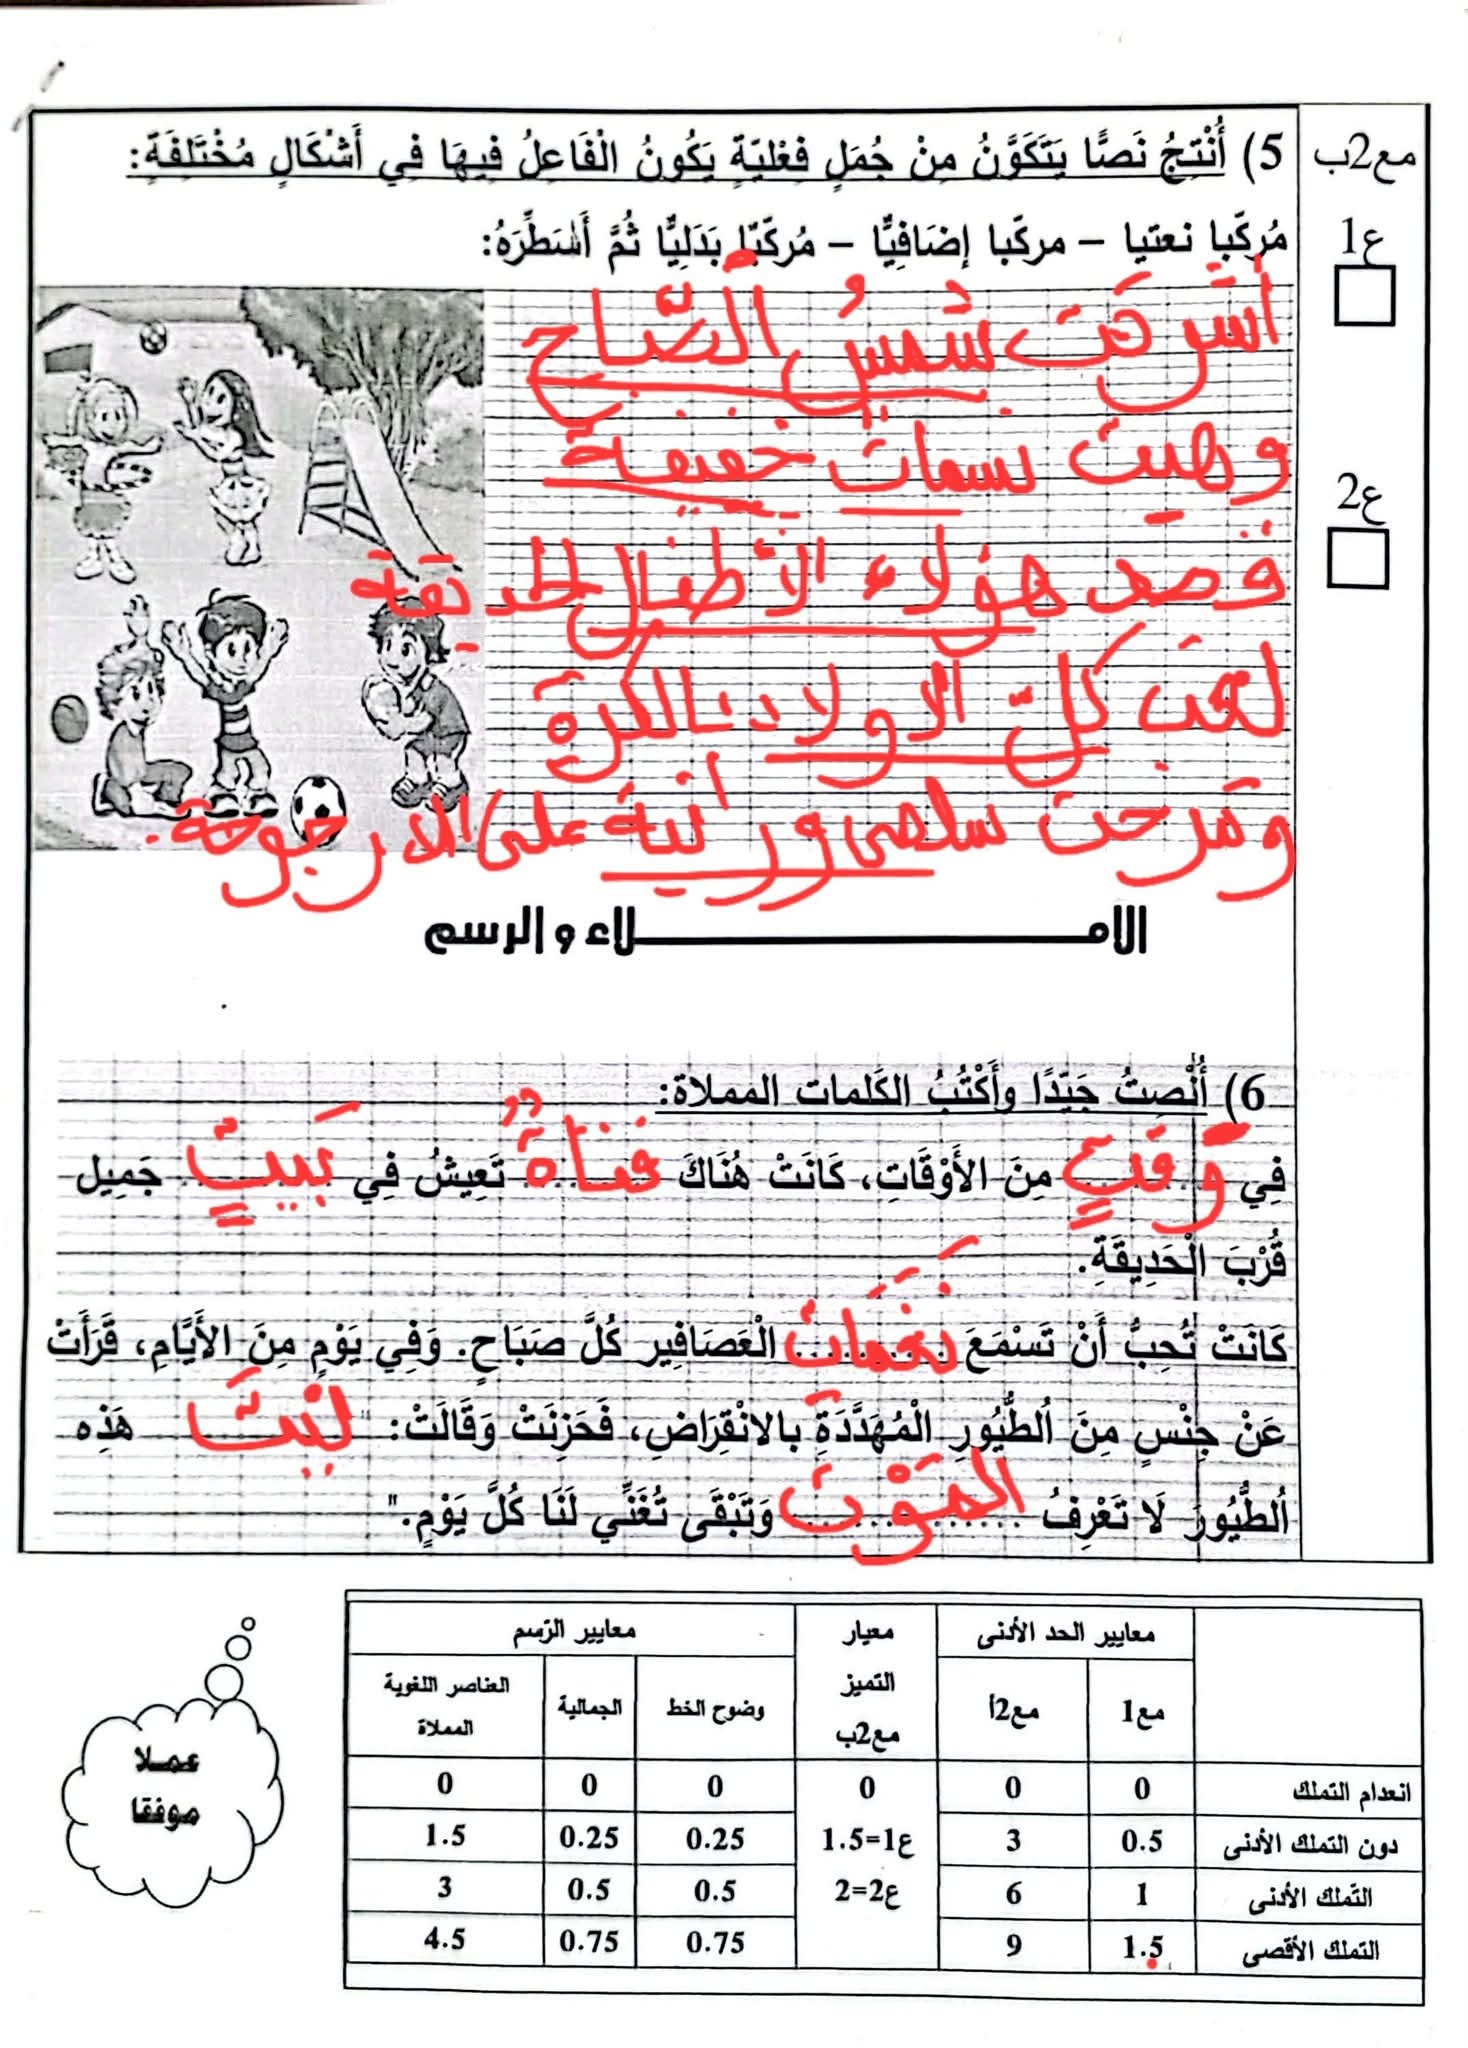 مع2ب
5) أُنْتِجُ نَصًّا يَتَكَوَّنُ مِنْ جُمَلٍ فِعْليّةٍ يَكُونُ الْفَاعِلُ فِيهَا فِي أَشْكَالٍ مُخْتَلِفَةٍ:
ع1
مُركّبا نعتيا – مركّبا إضَافِيًّا – مُركّبًا بَدَلِيًّا ثُمَّ أُسَطِّرَهُ:
أشرقت شمسُ الصّباح
وهبت نسمات خفيفة
ع2
قصد هؤلاء الأطفال الحديقة
لعب كلّ الأولاد بالكرة
ومرحت سلمى ورانية على الارجوحة.
الامـــلاء و الرسم
6) أُنْصِتُ جَيّدًا وأَكْتُبُ الكَلمات المملاة:
فِي وَقتٍ مِنَ الأَوْقَاتِ، كَانَتْ هُنَاكَ فتاةٌ تَعِيشُ فِي بَيتٍ جَمِيل
قُرْبَ الْحَدِيقَةِ.
كَانَتْ تُحِبُّ أَنْ تَسْمَعَ نَغَمَاتِ الْعَصَافِير كُلَّ صَبَاحٍ. وَفِي يَوْمٍ مِنَ الأَيَّامِ، قَرَأَتْ
عَنْ جِنْسٍ مِنَ الطُّيُورِ الْمُهَدَّدَةِ بالانْقِرَاضِ، فَحَزِنَتْ وَقَالَتْ: "لَيْتَ هَذِه
الطُّيُورَ لَا تَعْرِفُ الموْتَ وَتَبْقَى تُغَنِّي لَنَا كُلَّ يَوْمٍ."
معايير الحد الأدنى معيار التميز مع2ب معايير الرّسم
مع1 مع2أ وضوح الخط الجمالية العناصر اللغوية المملاة
انعدام التملك 0 0 0 0 0 0
دون التملك الأدنى 0.5 3 ع1=1.5 0.25 0.25 1.5
التّملك الأدنى 1 6 ع2=2 0.5 0.5 3
التملك الأقصى 1.5 9 0.75 0.75 4.5
عملا
موفقا